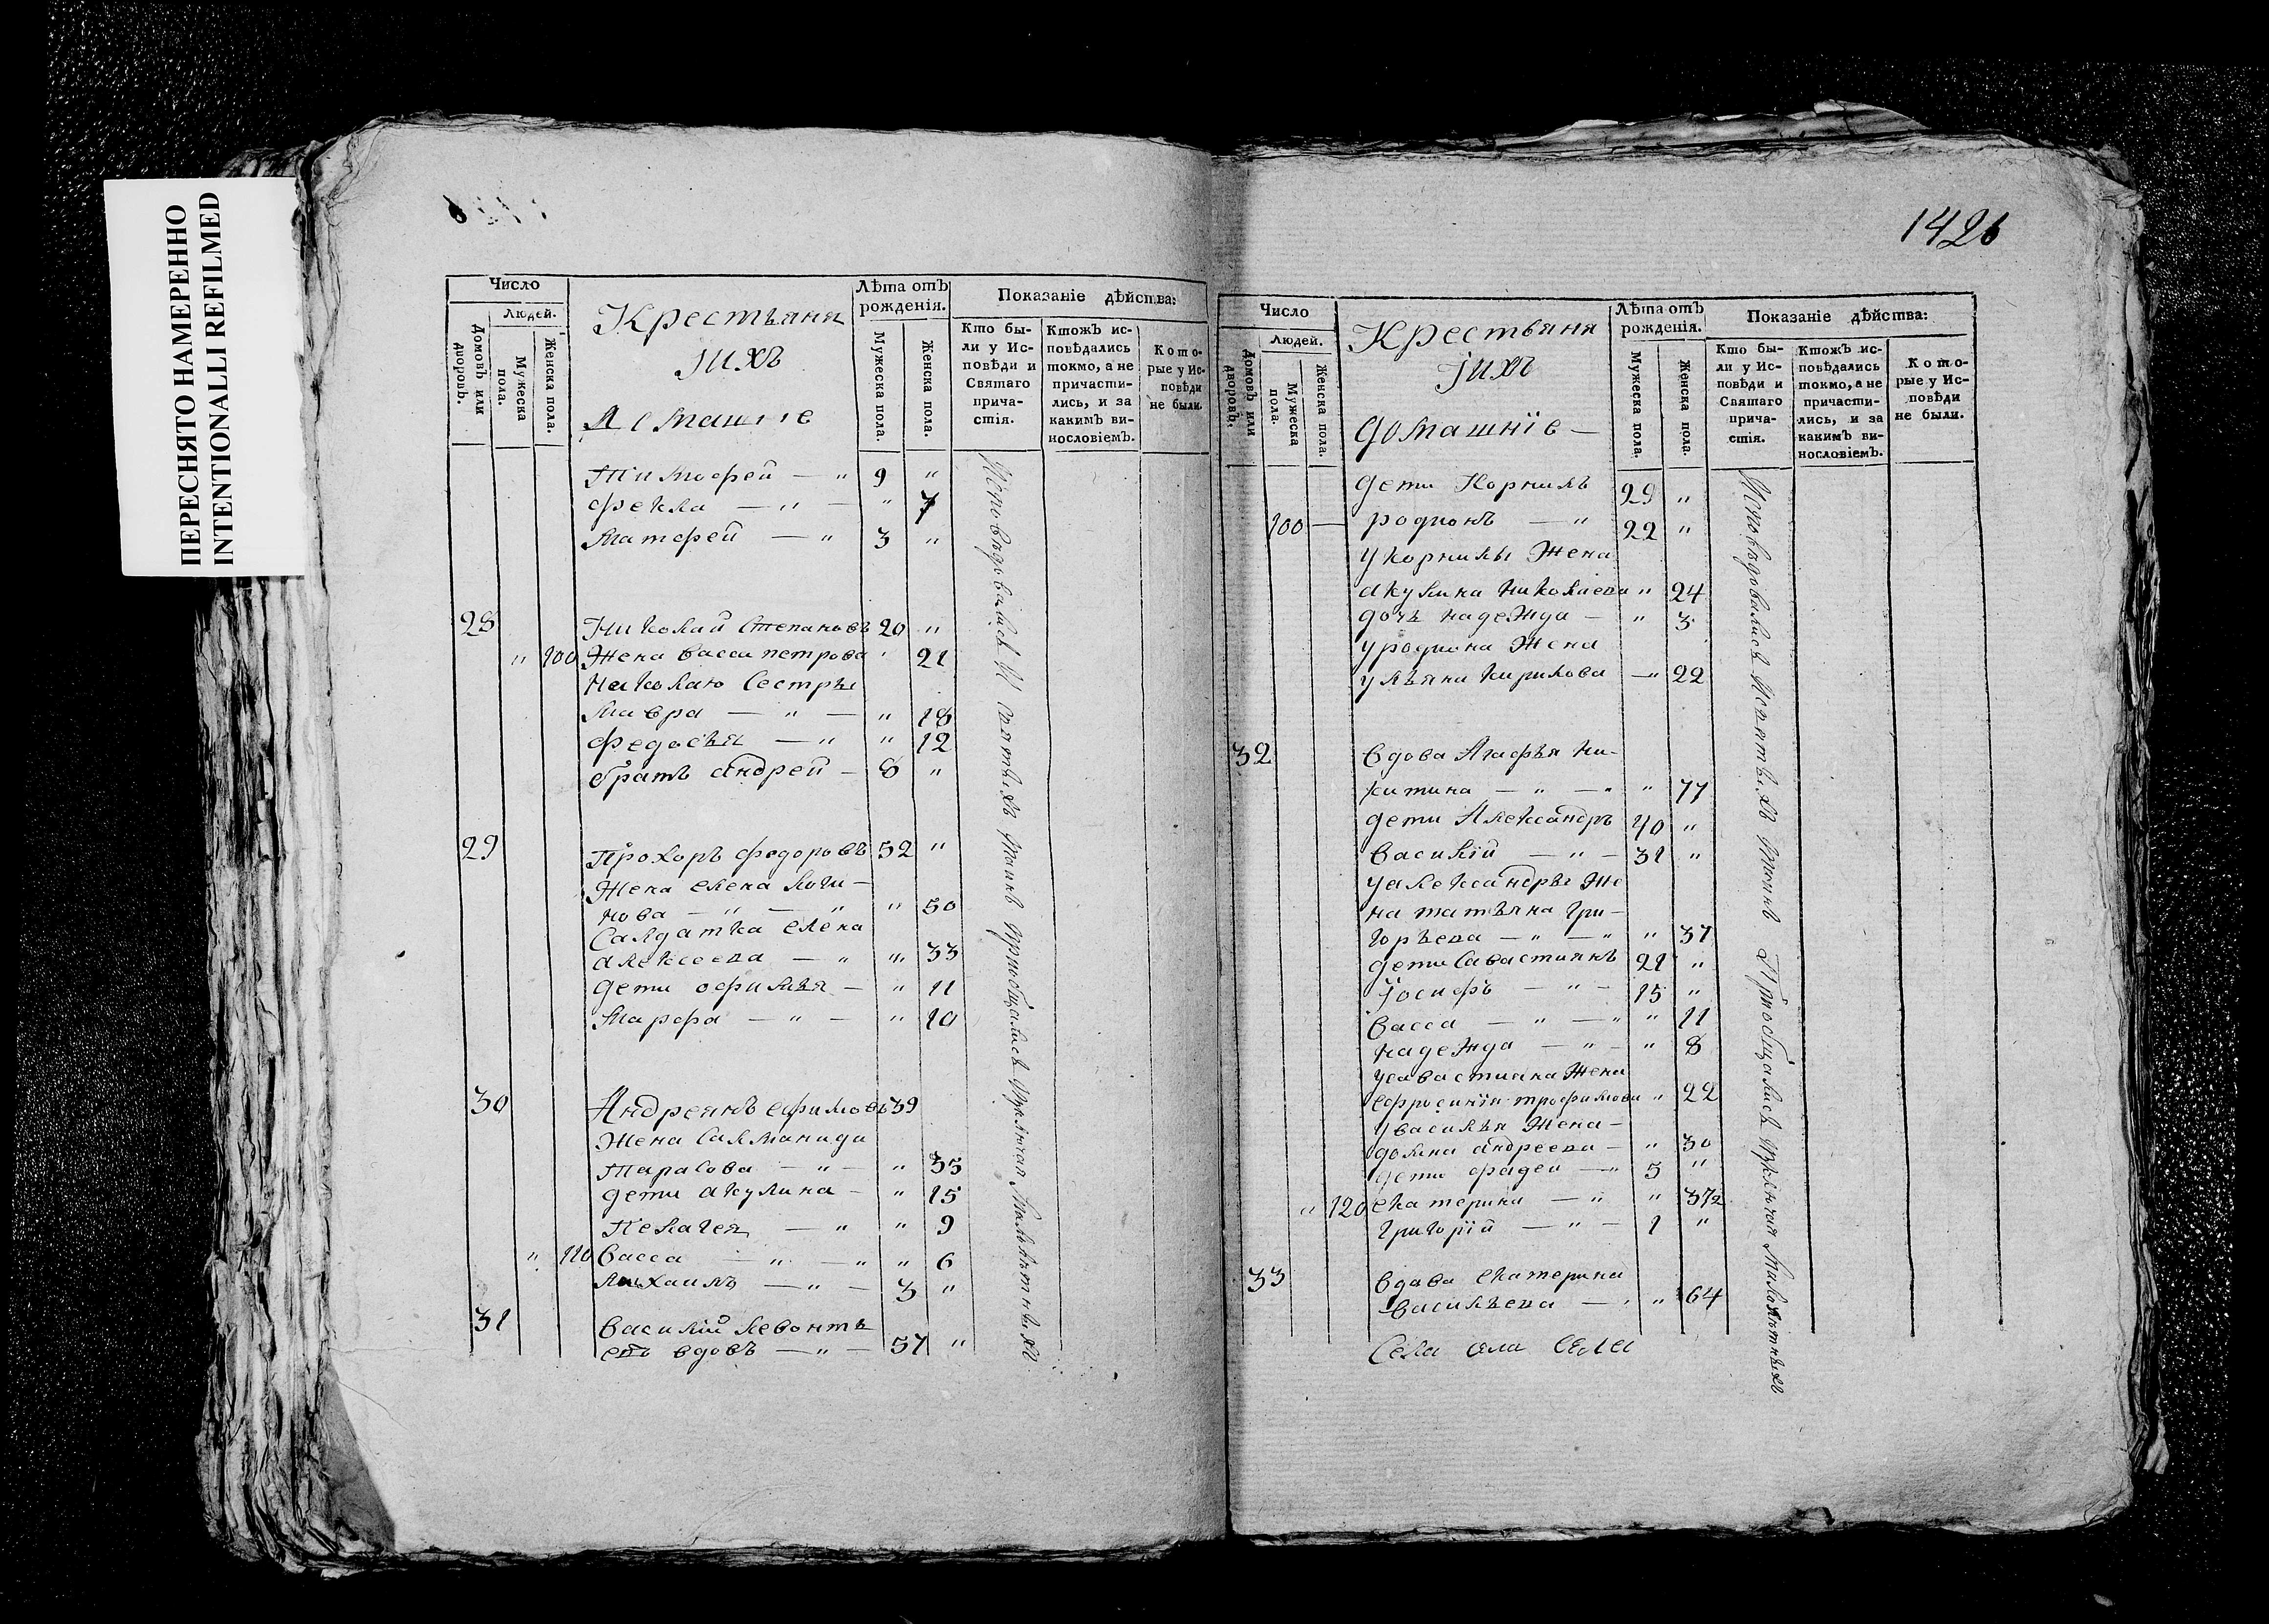 ПЕРЕСНЯТО НАМЕРЕННО
INTENTIONALLI REFILMED
Число
Людей.
Домовъ или дворовъ.
Мужеска пола.
Женска пола.
Крестьяня
ӏихъ
Домашніе
Лѣта отъ рожденія.
Мужеска пола.
Женска пола.
Показаніе дѣйства:
Кто были у Исповѣди и Святаго причастія.
Ктожъ исповѣдались токмо, а не причастились, и за какимъ винословіемъ.
Которые у Исповѣди не были.
Тимофей — " 9 "
фекла — " — " 7
Матфей — " 3 "
28 Николай Степановъ 20 "
" 100 Жена васса петрова " 21
Николаю Сестры
Мавра — " — " 18
федосья — " " 12
братъ андрей — 8 "
29 Прохоръ федоровъ 52 "
Жена елена логи-
нова — " — " " 50
Салдатка елена
алексеева — " " 33
дети офимья — " 11
Марфа — " — " 10
30 Андреянъ ефимовъ 39
Жена Саламанида
Тарасова — " — " 35
дети акулина — " 15
Пелагея — " " 9
" 110 васса — " — " " 6
михаилъ — " — 3 "
31 василій левонть
евъ вдовъ — " — 57 "
Исповѣдовались И святыхъ таинъ приобщались включая малолѣтныхъ
1426
Число
Людей.
Домовъ или дворовъ.
Мужеска пола.
Женска пола.
Крестьяня
ӏихъ
домашніе —
Лѣта отъ рожденія.
Мужеска пола.
Женска пола.
Показаніе дѣйства:
Кто были у Исповѣди и Святаго причастія.
Ктожъ исповѣдались токмо, а не причастились, и за какимъ винословіемъ.
Которые у Исповѣди не были.
дети Корнилъ 29 "
100 — родионъ — " 22 "
укорнилы Жена
акулина николаева " 24
дочь надежда — " 3
уродиона Жена
ульяна кирилова — " 22
32 вдова Агафья ни-
китина — " — " " 77
дети Александръ 40 "
василій — " — 31 "
уалександры Же
на татьяна гри-
горьева — " — " " 37
дети Савастиянъ 21 "
Іосифъ — " — 15 "
васса — " — " " 11
надежда — " — " 8
усавастияна Жена
ефросинія трофимова " 22
увасилья Жена —
домна андреева — " 30
дети фадей — " 5 "
" 120 екатерина — " " 3 1/2
григорій — " — 1 "
33 вдава екатерина
васильева — " " 64
Села села села
Исповѣдовались Исвятыхъ таинъ Приобщались включая малолѣтныхъ